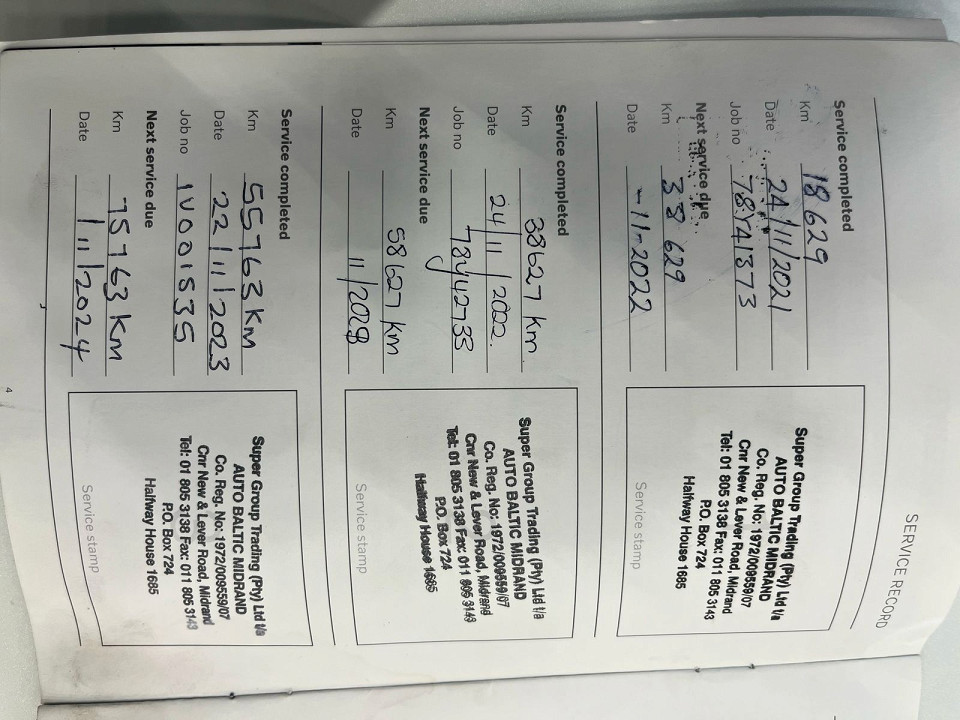 SERVICE RECORD
Service completed
Km 18 629
Date 24/11/2021
Job no 78Y41373
Next service due
Km 38 629
Date -11-2022
Super Group Trading (Pty) Ltd t/a
AUTO BALTIC MIDRAND
Co. Reg. No: 1972/009559/07
Cnr New & Lever Road, Midrand
Tel: 01 805 3138 Fax: 011 805 3143
P.O. Box 724
Halfway House 1685
Service completed
Km 38627 km
Date 24/11/2022
Job no 78Y42733
Next service due
Km 58627 km
Date 11/2023
Super Group Trading (Pty) Ltd t/a
AUTO BALTIC MIDRAND
Co. Reg. No: 1972/009559/07
Cnr New & Lever Road, Midrand
Tel: 01 805 3138 Fax: 011 805 3143
P.O. Box 724
Halfway House 1685
Service stamp
Service completed
Km 55763 KM
Date 22/11/2023
Job no 1V001535
Next service due
Km 75763 KM
Date /11/2024
Super Group Trading (Pty) Ltd t/a
AUTO BALTIC MIDRAND
Co. Reg. No: 1972/009559/07
Cnr New & Lever Road, Midrand
Tel: 01 805 3138 Fax: 011 805 3143
P.O. Box 724
Halfway House 1685
Service stamp
Service stamp
4